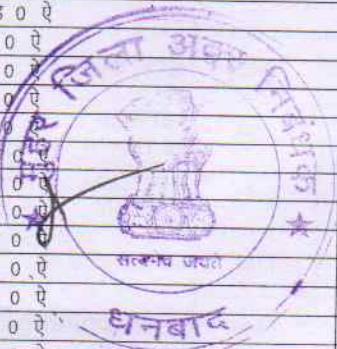 ड 0 ऐ
0 ऐ
0 ऐ
0 ऐ
0 ऐ
0 ऐ
0
0
0
0 ऐ
0 ऐ
0 ऐ
जिला अवर निबंधक
सत्यमेव जयते
धनबाद